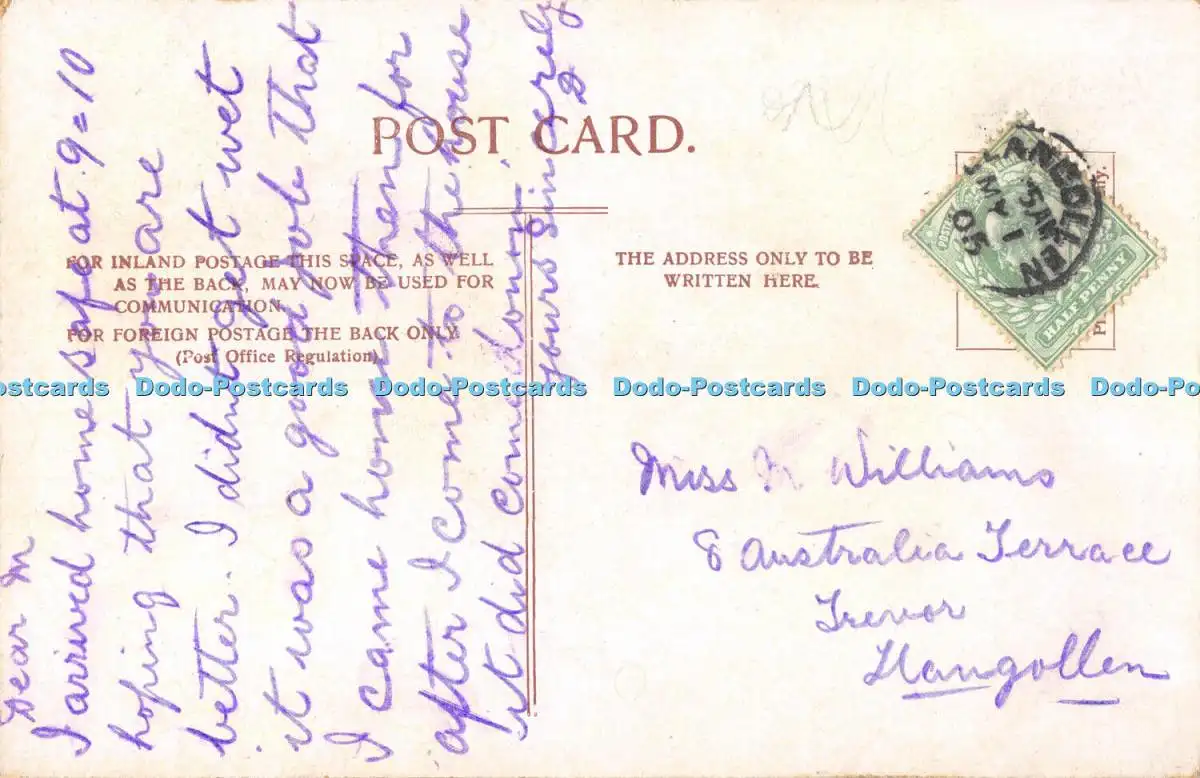 POST CARD.
FOR INLAND POSTAGE THIS SPACE, AS WELL
AS THE BACK, MAY NOW BE USED FOR
COMMUNICATION.
FOR FOREIGN POSTAGE THE BACK ONLY.
(Post Office Regulation)
THE ADDRESS ONLY TO BE
WRITTEN HERE.
Dear M
I arived home safe at 9=10
hoping that you are
better. I didnt get wet
it was a good job that
I came home then for
after I come to the house
it did come down
yours Sincerely
D
LLANGOLLEN
MY 1
05
HALFPENNY
Miss Williams
8 Australia Terrace
Trevor
Llangollen
Dodo-Postcards Dodo-Postcards Dodo-Postcards Dodo-Postcards